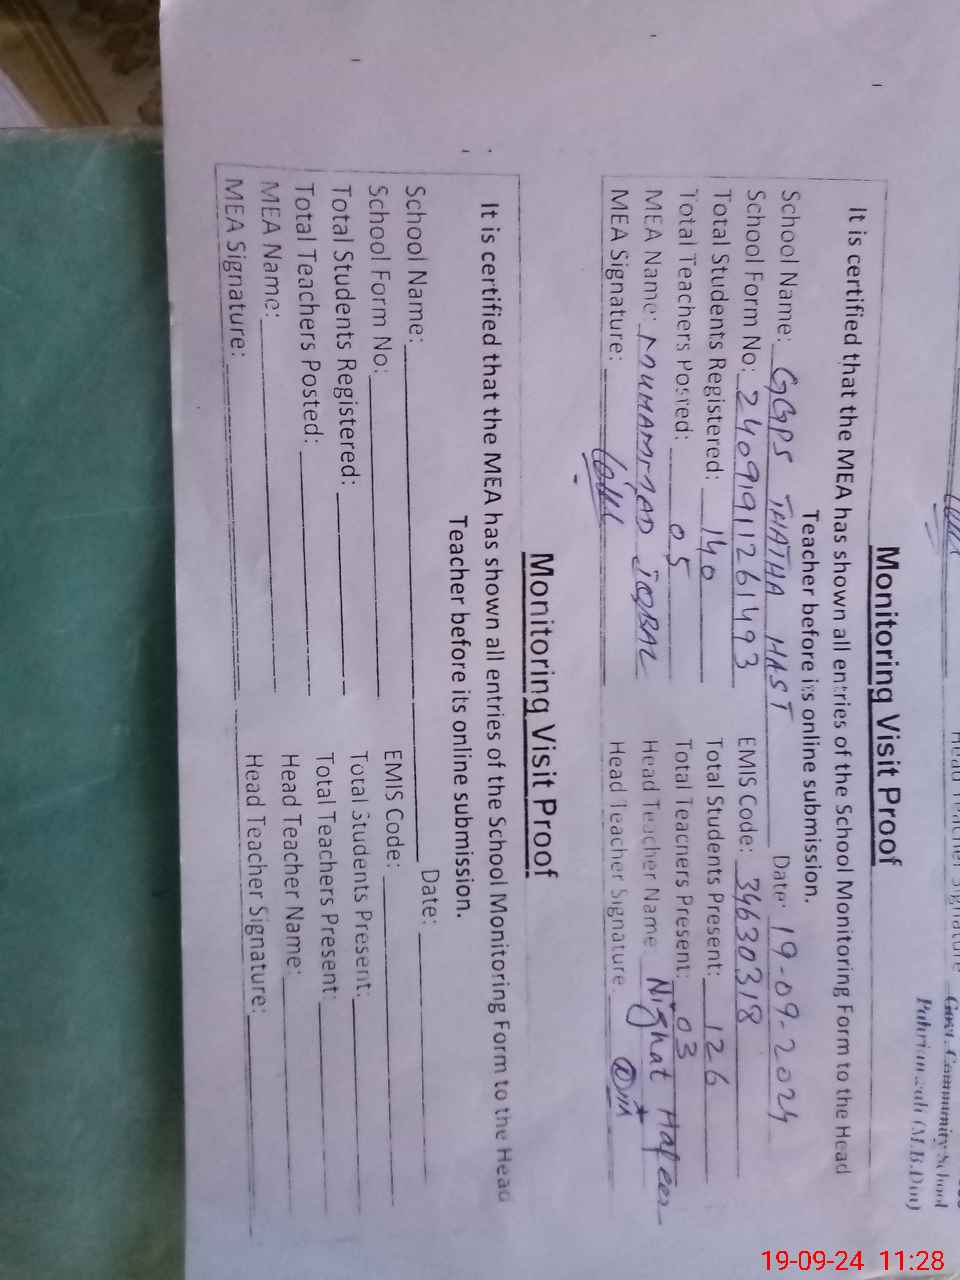 Head Teacher Signature
Govt. Community School
Pahrianwali (M.B.Din)
Monitoring Visit Proof
It is certified that the MEA has shown all entries of the School Monitoring Form to the Head
Teacher before its online submission.
School Name: GGPS THATHA HAST Date: 19-09-2024
School Form No: 2409191261493 EMIS Code: 34630318
Total Students Registered: 140 Total Students Present: 126
Total Teachers Posted: 05 Total Teachers Present: 03
MEA Name: MUHAMMAD IQBAL Head Teacher Name Nighat Hafeez
MEA Signature: Head Teacher Signature
Monitoring Visit Proof
It is certified that the MEA has shown all entries of the School Monitoring Form to the Head
Teacher before its online submission.
School Name: Date:
School Form No: EMIS Code:
Total Students Registered: Total Students Present:
Total Teachers Posted: Total Teachers Present:
MEA Name: Head Teacher Name:
MEA Signature: Head Teacher Signature:
19-09-24 11:28